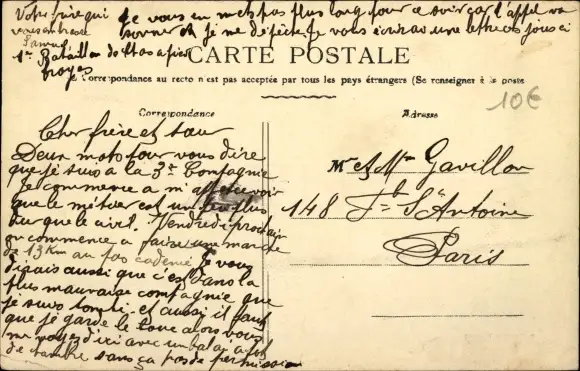 Votre frère qui Je vous en mets pas plus long pour ce soir car l'appel va
vous embrasse sonner et je me dépêche Je vous écrirai une lettre ces jours ci
1er Bataillon de Chas a pied
Troyes
CARTE POSTALE
La Correspondance au recto n'est pas acceptée par tous les pays étrangers (Se renseigner à la poste
10€
Correspondance
Adresse
Cher frère et sœur
Deux mots pour vous dire
que je suis a la 3e Compagnie
Je commence a m'apercevoir
que le métier est un peu plus
dur que le civil. Vendredi prochain
on commence a faire une marche
de 13 Km au pas cadencé Je vous
dirais aussi que c'est dans la
plus mauvaise compagnie que
je suis tombé et aussi il faut
que je garde le alors vous
me voyez d'ici avec un balai a
de chambre sans ça pas de permission
Mr et Mme Gavillon
148 Fb St Antoine
Paris